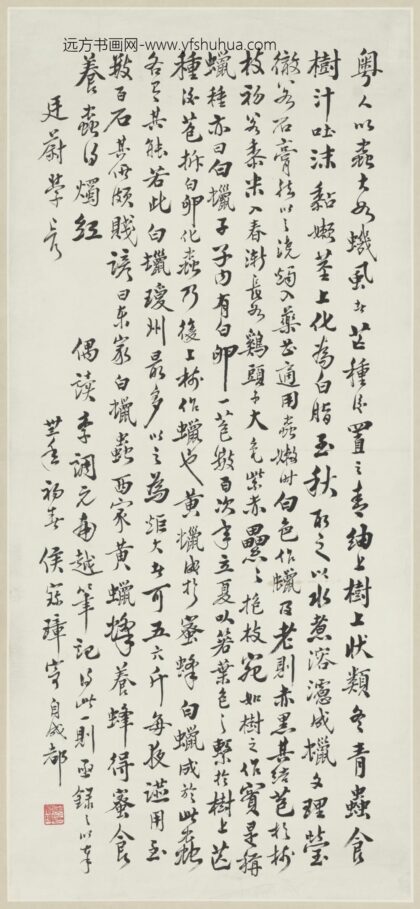 远方书画网-www.yfshuhua.com
粤人以蟲大如蟣風者芒種後置之青紬上樹上狀類冬青蟲食
樹汁吐沫黏嫩莖上化為白脂至秋取之以水煮溶濾成蠟文理瑩
徹若石膏以之澆燭入藥甚適用蟲嫩時白色作蠟及老則赤黑其結苞於樹
枝初若黍米入春漸長如鷄頭子大色紫赤纍纍抱枝宛如樹之作實是稱
蠟種亦曰白蠟子子內有白卵一苞數百次年立夏以箬葉包之繫於樹上芒
種後苞拆白卵化蟲乃復上樹作蠟也黃蠟成於蜜蜂白蠟成於此蟲
各有其能若此白蠟瓊州最多以之為炬大者可五六斤每夜讌用至
數百石其價頗賤諺曰東家白蠟蟲西家黃蠟蜂養蜂得蜜食
養蟲得燭紅 偶讀李調元南越筆記得此一則亟錄之以奉
廷蔚學長 卅年初春侯寶璋寄自成都